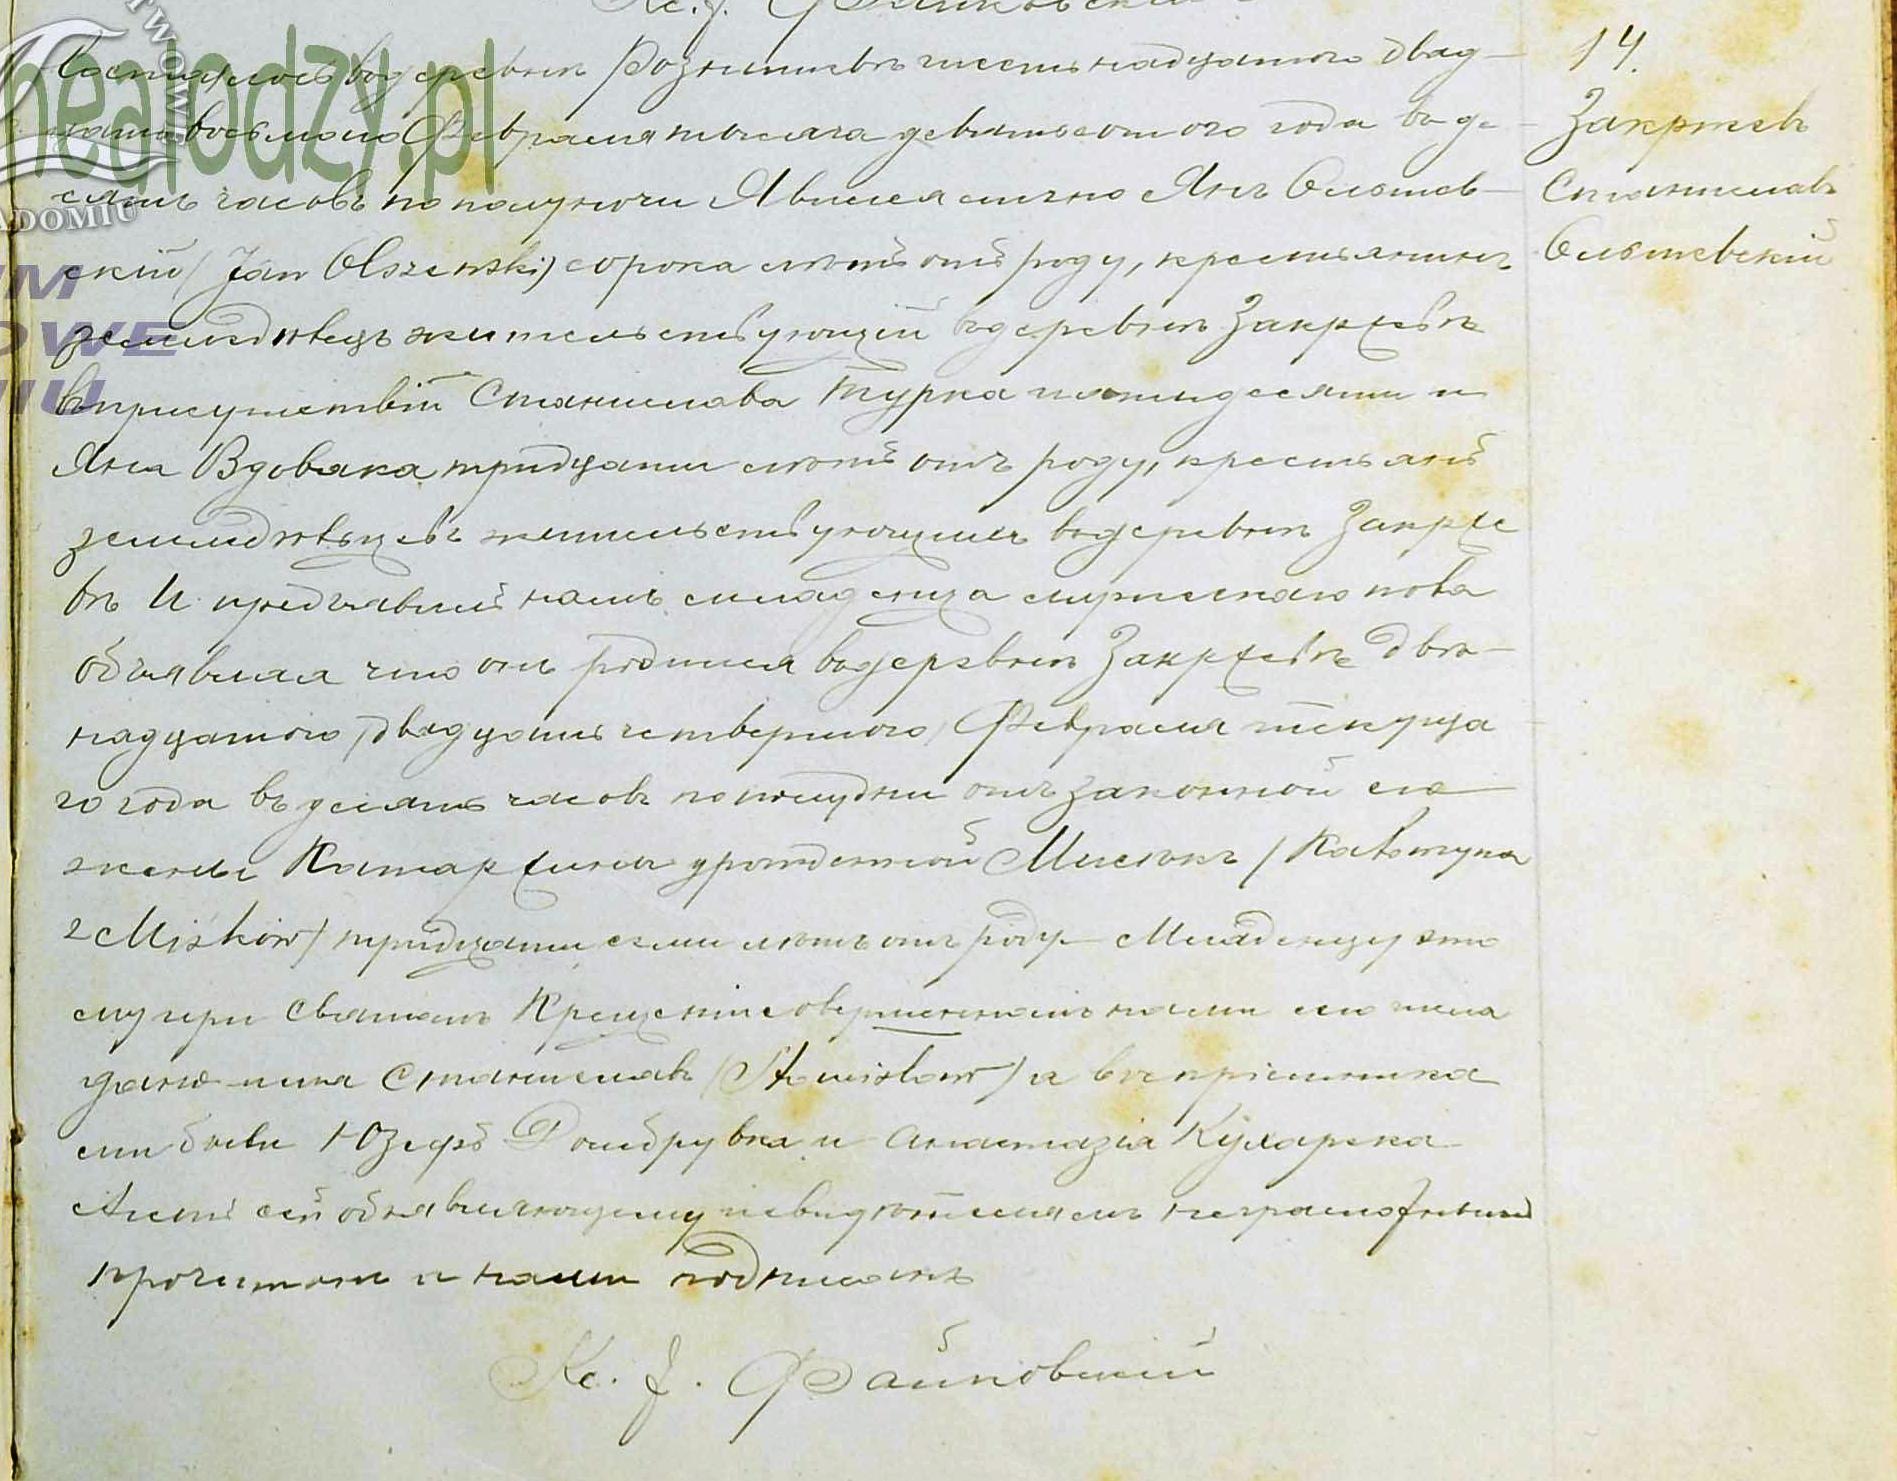 Состоялось въ деревни Рознишевѣ шестьнадцатого двад-
цать восьмого Февраля тысяча девятьсотого года въ де-
сять часовъ по полуночи Явился лично Янъ Ольшев-
скій (Jan Olszewski) сорока лѣтъ отъ роду, крестьянинъ
земледѣлецъ жительствующій въ деревни Закржевѣ
въ присутствіи Станислава Турка пятидесяти и
Яна Вдовяка тридцати лѣтъ отъ роду, крестьянъ
земледѣльцевъ жительствующихъ въ деревни Закрже
вѣ И предъявилъ намъ младенца мужескаго пола
объявляя что онъ родился въ деревни Закржевѣ двѣ-
надцатого /двадцать четвертого/ Февраля текуща
го года въ десять часовъ пополудни отъ законной его
жены Катаржины урожденной Мисюкъ /Katarzyna
z Misków/ тридцати семи лѣтъ отъ роду Младенцу это
му при Святомъ Крещеніи совершенномъ нами его числа
дано имя Станиславъ (Stanisław) а воспріемника
ми были Юзефъ Домбрувка и Анастазія Кухарска
Актъ сей объявляющему и свидѣтелямъ неграмотнымъ
прочитанъ и нами подписанъ
Кс. J. Файковскій
14.
Закржевъ
Станиславъ
Ольшевскій
healodzy.pl